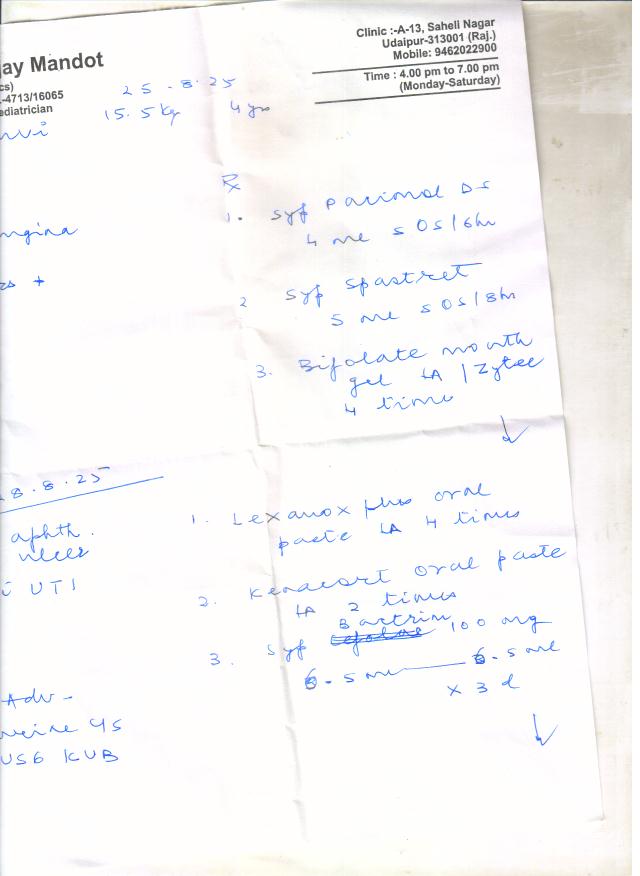 jay Mandot
cs)
-4713/16065
ediatrician
Clinic :-A-13, Saheli Nagar
Udaipur-313001 (Raj.)
Mobile: 9462022900
Time : 4.00 pm to 7.00 pm
(Monday-Saturday)
25.8.25
15.5 kg 4 yrs
nvi
ngina
Rx
1. Syp Pacimol DS
4 ml SOS/6hr
2 Syp Spastret
5 ml SOS/8hr
3. Bifolate mouth
gel LA / Zytee
4 times
8.8.25
aphth.
ulcer
UTI
1. Lexanox plus oral
paste LA 4 times
2. Kenacort oral paste
LA 2 times
3. Syp Bactrim 100 mg
6.5 ml — 6.5 ml
x 3 d
Adv -
urine C/S
USG KUB